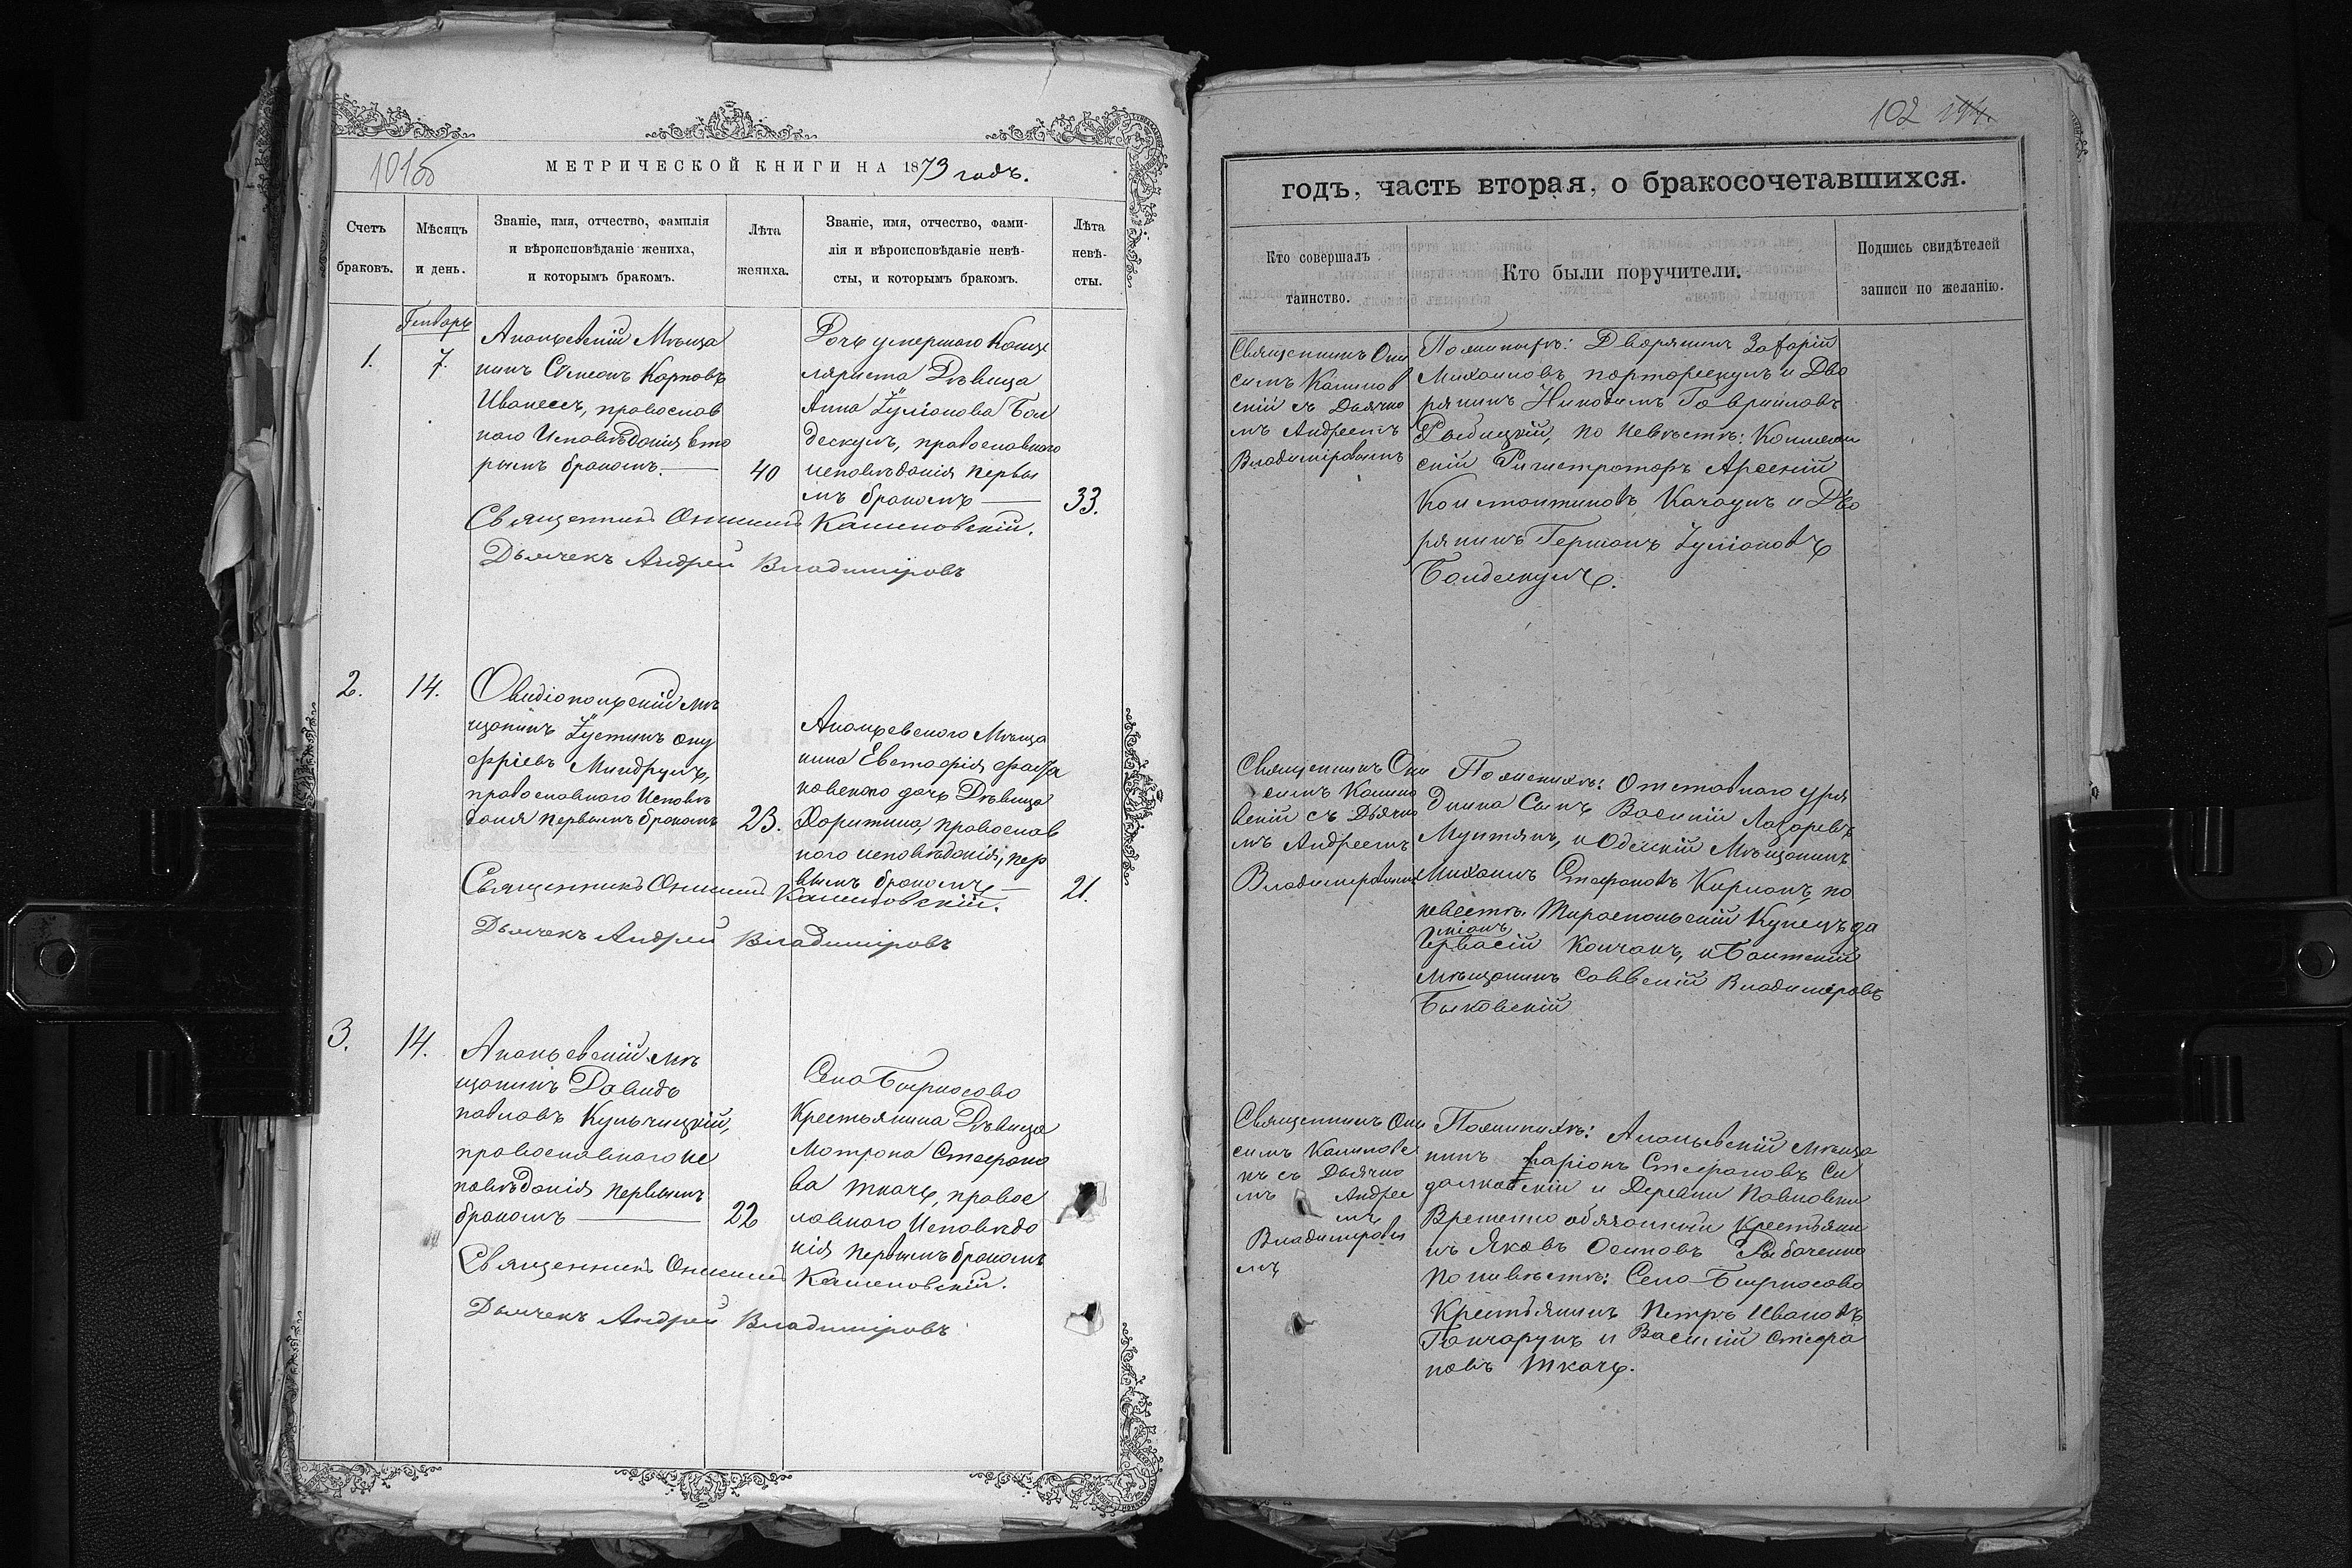 101об
МЕТРИЧЕСКОЙ КНИГИ НА 1873 годъ.
Счетъ
браковъ.
Мѣсяцъ
и день.
Званіе, имя, отчество, фамилія
и вѣроисповѣданіе жениха,
и которымъ бракомъ.
Лѣта
жениха.
Званіе, имя, отчество, фами-
лія и вѣроисповѣданіе невѣ-
сты, и которымъ бракомъ.
Лѣта
невѣ-
сты.
Генварь
1.
7.
Ананьевскій Мѣща
нинъ Сѵмеонъ Карповъ
Иванесъ, православ
наго Исповѣданія вто
рымъ бракомъ.
40
Дочь умершаго Канце
ляриста Дѣвица
Анна Іуліанова Бол
дескулъ, православнаго
исповѣданія первы
мъ бракомъ
33.
Священникъ Онисимъ Калиновскій.
Дьячекъ Андрей Владиміровъ
2.
14.
Овидіопольскій мѣ
щанинъ Іустинъ Ону
фріевъ Миндрулъ,
православнаго Исповѣ
данія первымъ бракомъ
23.
Ананьевскаго Мѣща
нина Евстафія
новскаго дочь Дѣвица
Харитина, православ
наго исповѣданія, пер
вымъ бракомъ
21.
Священникъ Онисимъ Калиновскій.
Дьячекъ Андрей Владиміровъ
3.
14.
Ананьевскій мѣ
щанинъ Давидъ
Павловъ Кульчицкій,
православнаго ис
повѣданія первымъ
бракомъ
22
Село Бирносово
Крестьянина Дѣвица
Матрона Стефано
ва Ткачь, правос
лавнаго Исповѣда
нія первымъ бракомъ
Священникъ Онисимъ Калиновскій.
Дьячекъ Андрей Владиміровъ
102
годъ, часть вторая, о бракосочетавшихся.
Кто совершалъ
таинство.
Кто были поручители.
Подпись свидѣтелей
записи по желанію.
Священникъ Они
симъ Калинов
скій съ Дьячко
мъ Андреемъ
Владиміровымъ
По женихѣ: Дворянинъ Захарій
Михаиловъ и Дво
рянинъ Никодимъ Гавриловъ
Рыбицкій, по невѣстѣ: Коллежс
скій Регистраторъ Арсеній
Константиновъ Качаунъ и Дво
рянинъ Германъ Іуліановъ
Болдескулъ.
Священникъ Они
симъ Калино
вскій съ Дьячко
мъ Андреемъ
Владиміровымъ
По женихѣ: Отставнаго уря
дника Сынъ Василій Лазаревъ
Мунтянъ, и Одескій Мѣщанинъ
Михаилъ Стефановъ Кирланъ по
невестѣ. Тираспольскій Купецъ да
міанъ
Гервасій Колчанъ, и Балтскій
мѣщанинъ Савватій Владиміровъ
Быковскій
Священникъ Они
симъ Калиновс
къ съ Дьячко
мъ Андрее
мъ
Владимировы
мъ
По женихѣ: Ананьевскій мѣща
нинъ Ларіонъ Стефановъ Си
далковскій и Деревни Павловки
Временно обязанный Крестьяни
нъ Яковъ Осиповъ Рыбаченко
По невѣстѣ: Село Бирносово
Крестьянинъ Петръ Ивановъ
Гончарукъ и Василій Стефа
новъ Ткачь.